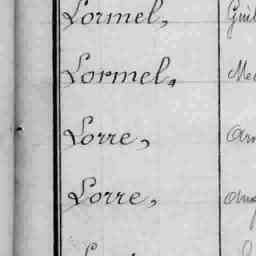 Lormel, Guil
Lormel,
Lorre,
Lorre,